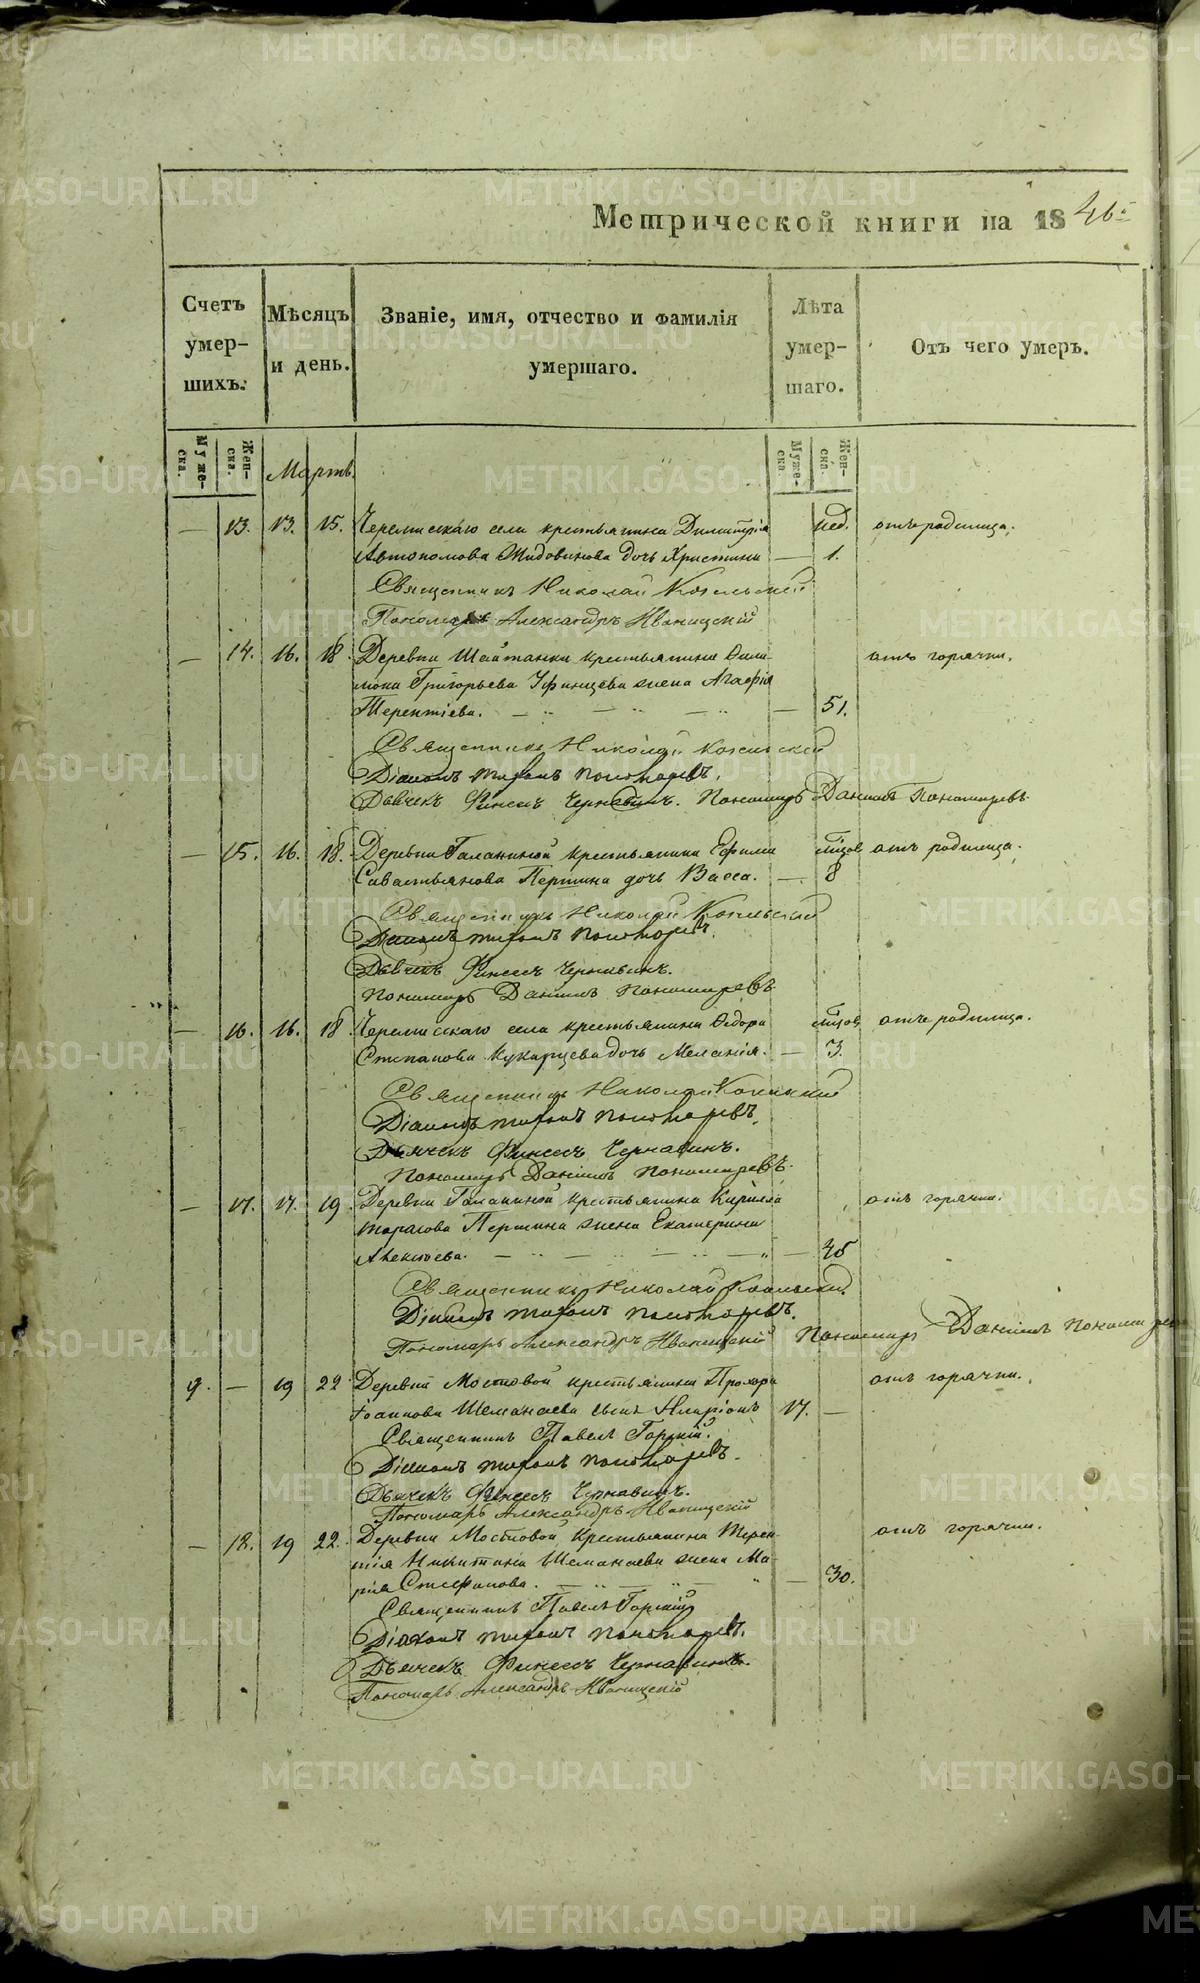 Метрической книги на 1846й
Счетъ умер- шихъ.
Мѣсяцъ и день.
Званіе, имя, отчество и фамилія умершаго.
Лѣта умер- шаго.
Отъ чего умеръ.
Муже- ска.
Жен- ска.
Мартъ.
Муже- ска.
Жен- ска.
— 13. 13. 15. Черемисскаго села крестьянина Димитрія нед. отъ родимца.
Автономова Жидовинова дочь Христина — 1.
Священникъ Николай
Пономарь Александръ Иваницкій
— 14. 16. 18. Деревни Шайтанки крестьянина Фили- отъ горячки.
мона Григорьева Уфинцева жена Агафія
Терентіева. — 51.
Священникъ Николай
Діаконъ Пономаревъ.
Дьячекъ Финеесъ Чернавинъ. Пономарь Даніилъ Пономаревъ
— 15. 16. 18. Деревни Галаниной крестьянина Ефима мѣсяцов отъ родимца.
Савастьянова Першина дочь Васса. — 8
Священникъ Николай
Діаконъ Пономаревъ
Дьячекъ Финеесъ Чернавинъ.
Пономарь Даніилъ Пономаревъ
— 16. 16. 18. Черемисскаго села крестьянина Ѳедора мѣсяцов отъ родимца.
Степанова Кукарцева дочь Меланія. — 3.
Священникъ Николай
Діаконъ Пономаревъ.
Дьячекъ Финеесъ Чернавинъ.
Пономарь Даніилъ Пономаревъ.
— 17. 17. 19. Деревни Галаниной крестьянина Кирилла отъ горячки.
Тарасова Першина жена Екатерина
Алексѣева. — 46
Священникъ Николай
Діаконъ Пономаревъ.
Пономарь Александръ Иваницкій Пономарь Даніилъ Пономаревъ
9. — 19 22 Деревни Мостовой крестьянина Прохора отъ горячки.
Іоаннова Шеманаева сынъ Иларіонъ 17. —
Священникъ Павелъ Горкій.
Діаконъ Пономаревъ.
Дьячекъ Финеесъ Чернавинъ.
Пономарь Александръ Иваницкій
— 18. 19 22. Деревни Мостовой крестьянина Терен- отъ горячки.
тія Никитина Шеманаева жена Ма-
рія Стефанова. — 30.
Священникъ Павелъ Горкій
Діаконъ Пономаревъ.
Дьячекъ Финеесъ Чернавинъ.
Пономарь Александръ Иваницкій
METRIKI.GASO-URAL.RU